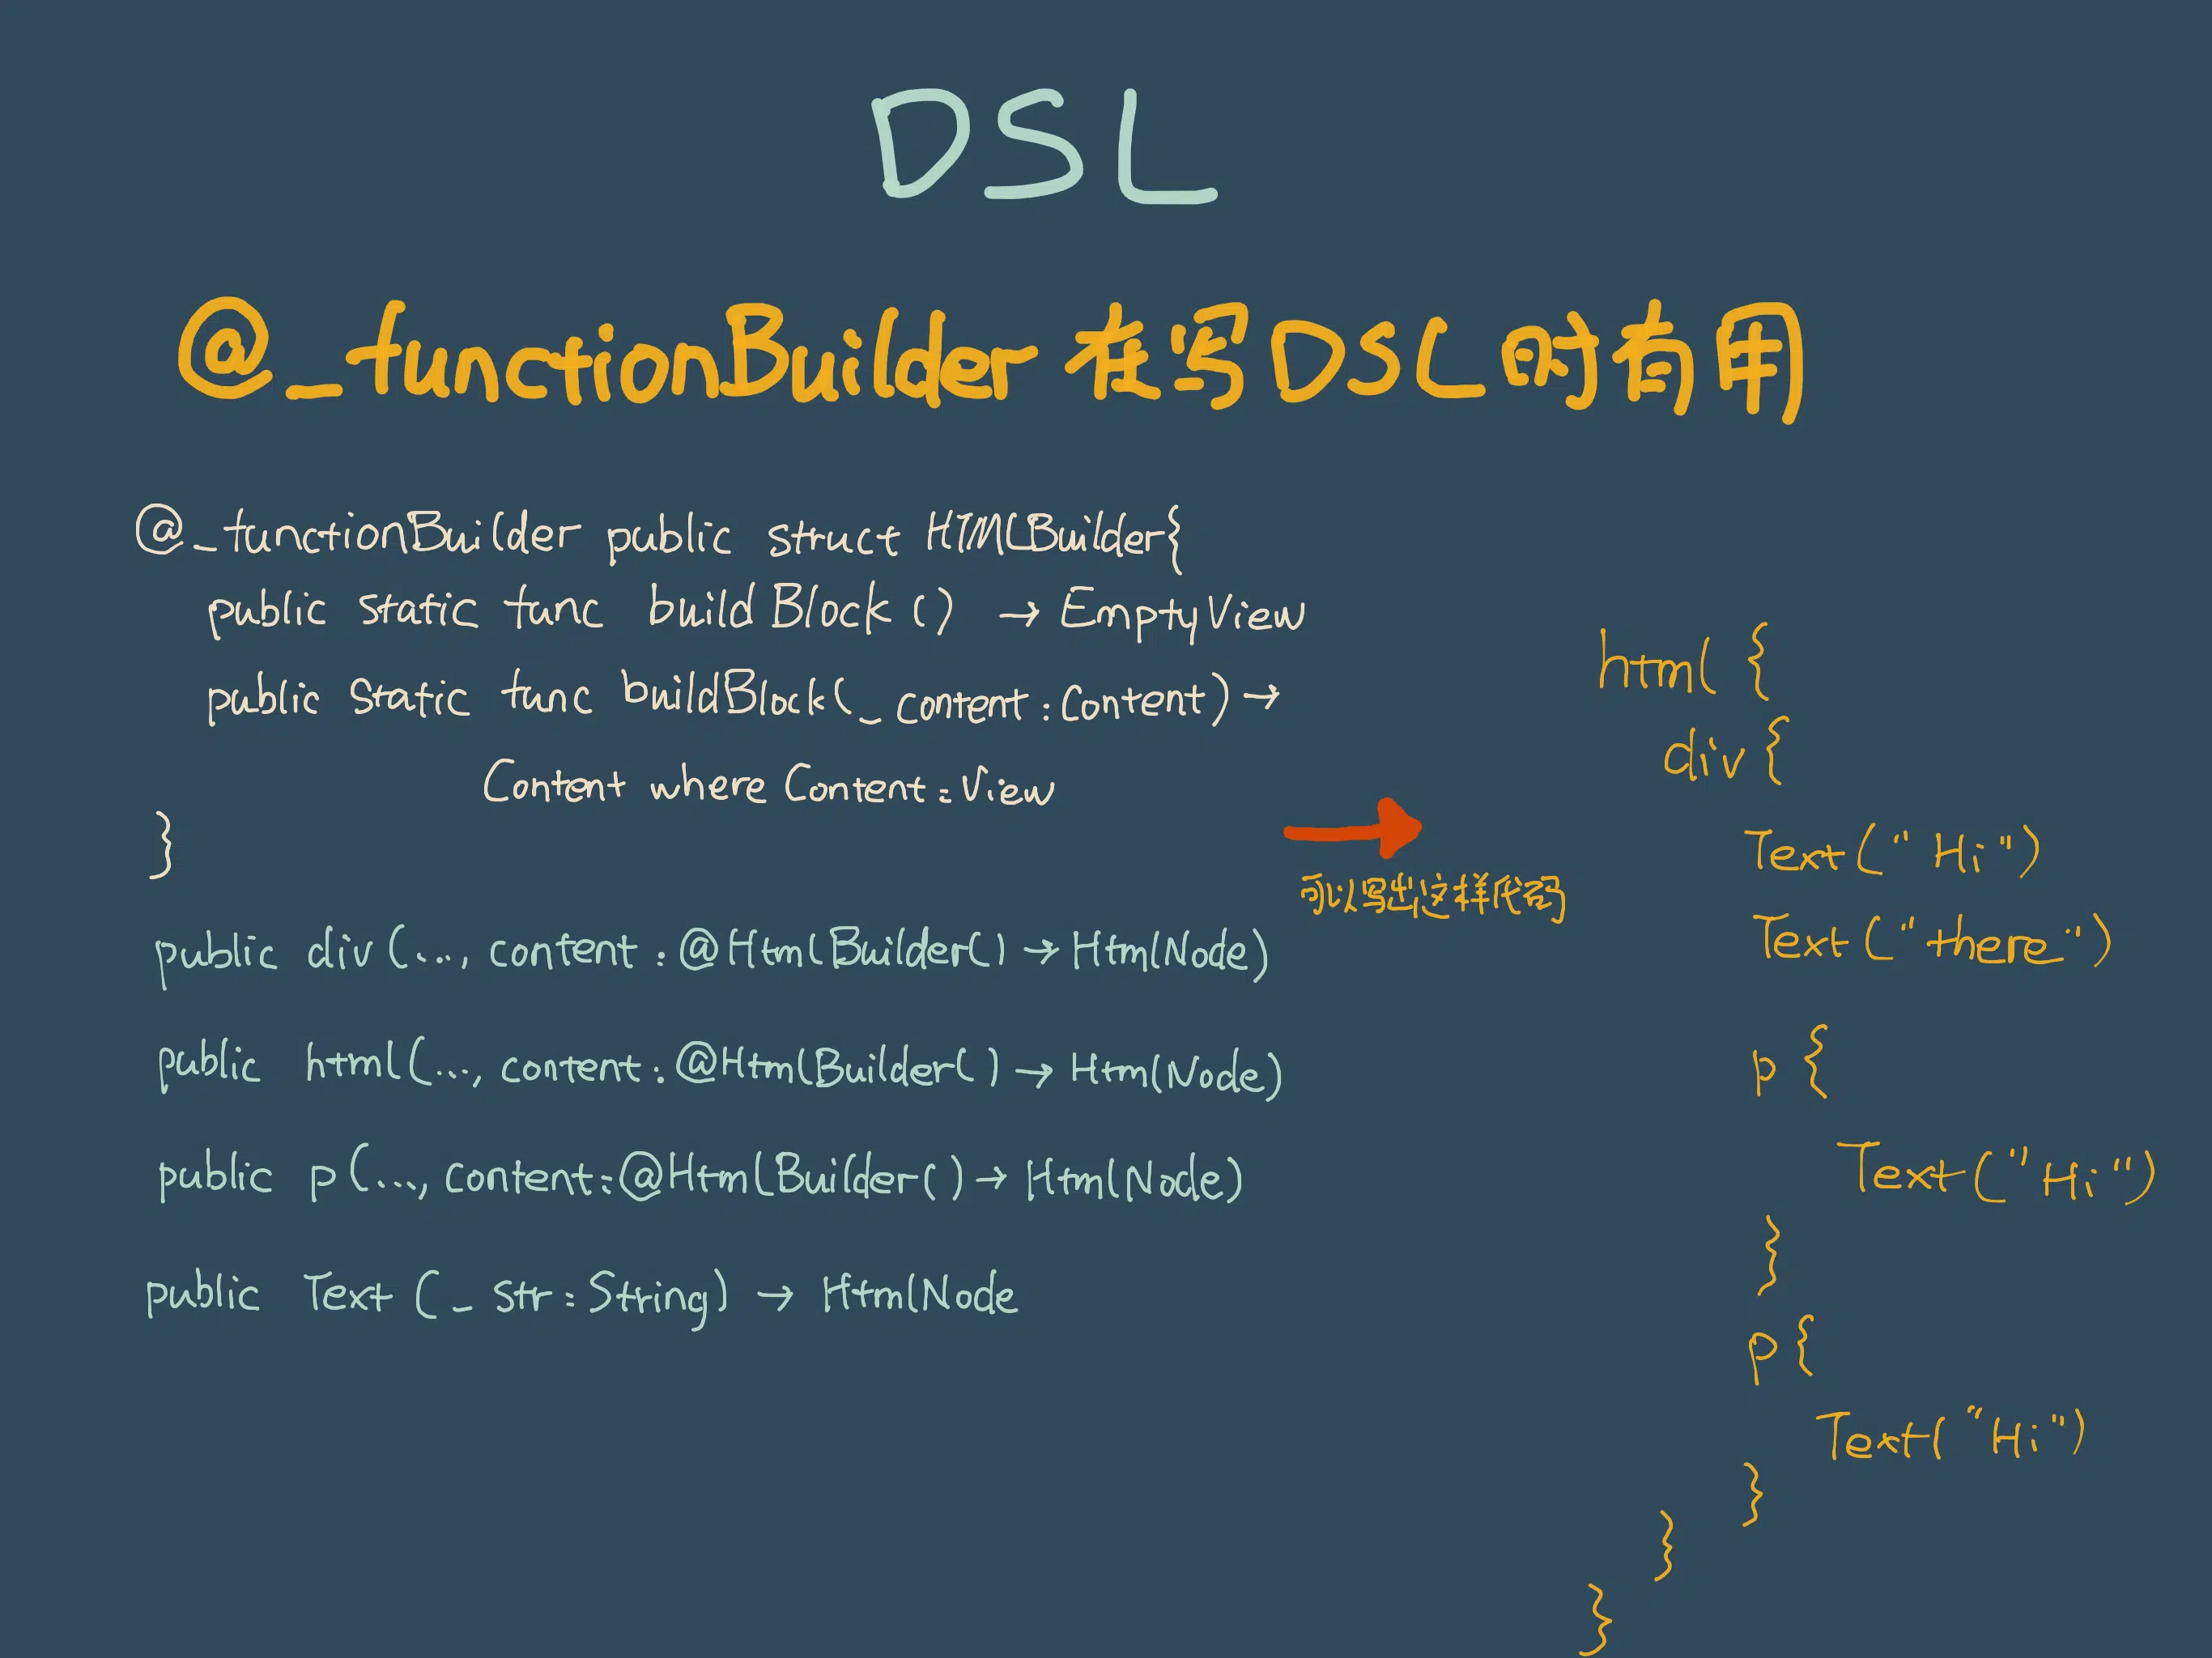 DSL
@_functionBuilder 在写DSL时有用
@_functionBuilder public struct HTMLBuilder{
public static func buildBlock () → EmptyView
public static func buildBlock(_ content:Content) →
Content where Content:View
}
public div (..., content:@HtmlBuilder() → HtmlNode)
public html(..., content:@HtmlBuilder() → HtmlNode)
public p(..., content:@HtmlBuilder() → HtmlNode)
public Text (_ str:String) → HtmlNode
可以写出这样代码
html {
div{
Text("Hi")
Text("there")
p{
Text("Hi")
}
p{
Text("Hi")
}
}
}